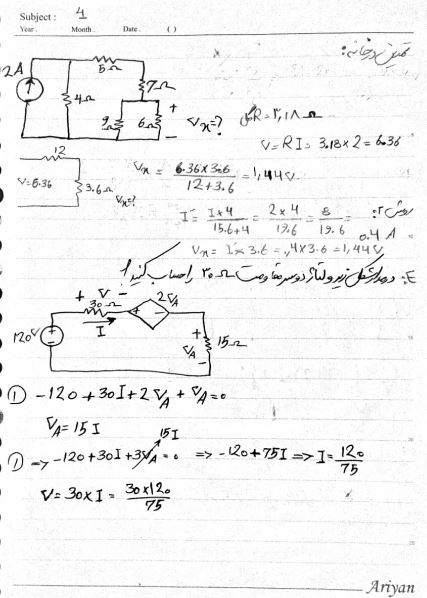 Subject : 4
Year . Month . Date . ( )
تمرین در خانه:
2A
5Ω
7Ω
4Ω
9Ω
6Ω
+
-
Vx=?
R = ۳,۱۸ Ω
V = RI = 3.18 × 2 = 6.36
12
V=6.36
3.6Ω
Vx=?
Vx = 6.36×3.6 / 12+3.6 = 1,44V
روش ۲:
I = I×4 / 15.6+4 = 2×4 / 19.6 = 8 / 19.6 = 0.4 A
Vx = I × 3.6 = ,4×3.6 = 1,44V
E: در مدار شکل زیر ولتاژ دو سر مقاومت ۳۰Ω را حساب کنید؟
+ V -
30Ω
I
2VA
120V
+
VA
-
15Ω
① -120 + 30I + 2VA + VA = 0
VA = 15 I
15I
① => -120 + 30I + 3VA = 0 => -120 + 75I => I = 120 / 75
V = 30 × I = 30×120 / 75
Ariyan